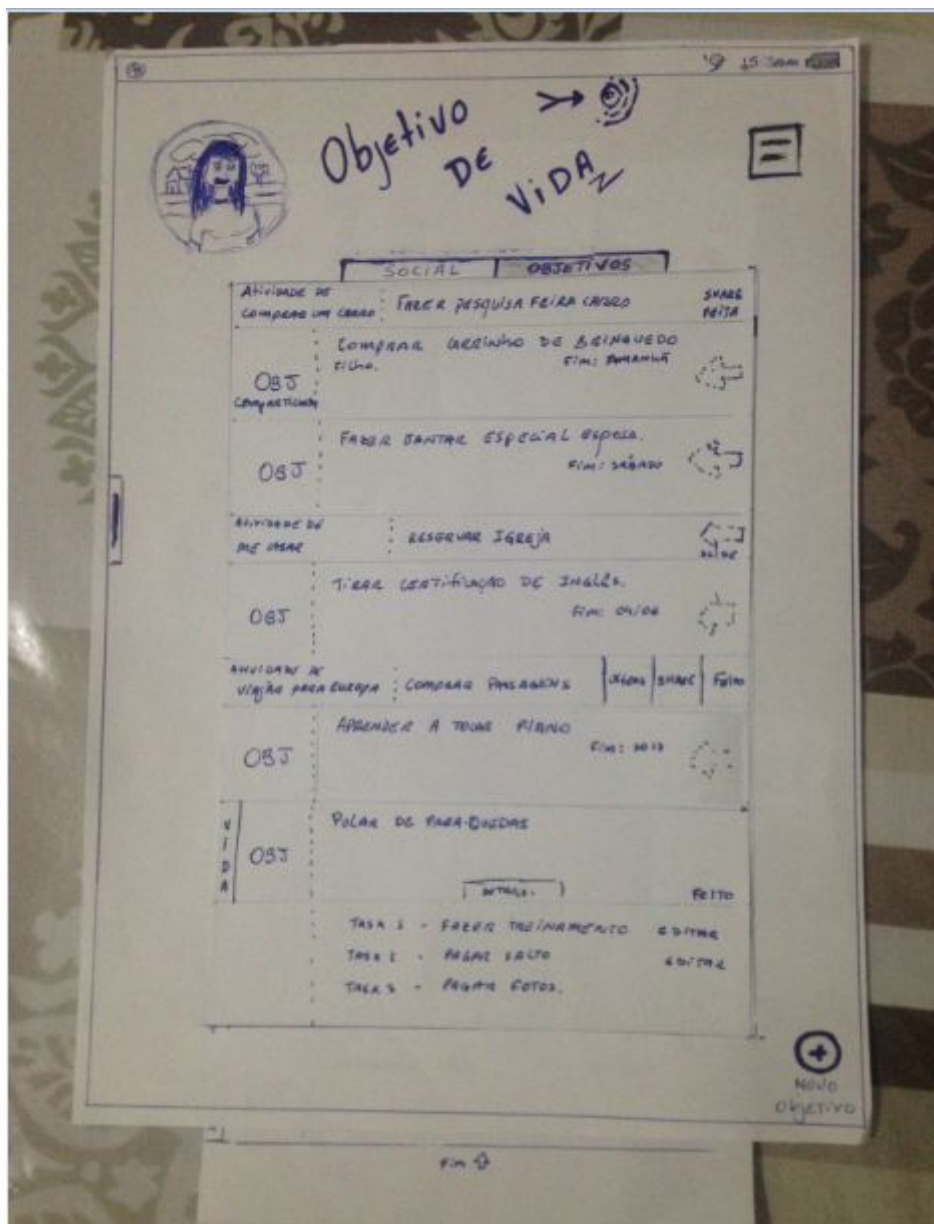 Objetivo
DE
ViDA
SOCIAL OBJETIVOS
Atividade de
comprar um carro : FAZER PESQUISA FEIRA CARRO SHARE
FEITA
COMPRAR CARRINHO DE BRINQUEDO
filho. Fim: AMANHÃ
OBJ
COMPARTILHADO
FAZER JANTAR ESPECIAL esposa.
OBJ Fim: SÁBADO
Atividade de
ME CASAR : RESERVAR IGREJA
TIRAR CERTIFICAÇÃO DE INGLÊS.
OBJ Fim: 04/06
ATIVIDADE DE
viajar PARA EUROPA : COMPRAR PASSAGENS SHARE Feito
APRENDER A TOCAR PIANO
OBJ Fim:
VIDA
PULAR DE PARA-QUEDAS
OBJ
FEITO
TASK 1 - FAZER TREINAMENTO EDITAR
TASK 2 - PAGAR SALTO EDITAR
TASK 3 - PAGAR FOTOS.
NOVO
Objetivo
Fim